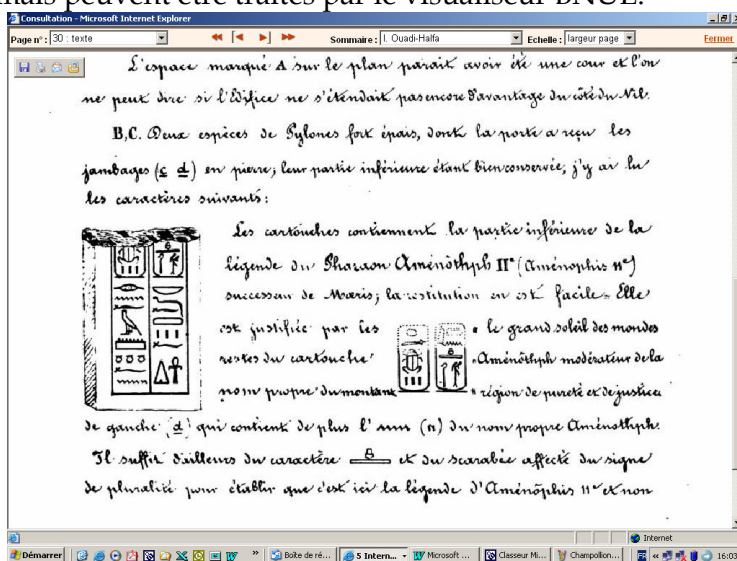 mais peuvent être traités par le visualiseur BNUE.
Consultation - Microsoft Internet Explorer
Page n° : 30 : texte Sommaire : I. Ouadi-Halfa Echelle : largeur page Fermer
L'espace marqué A sur le plan parait avoir été une cour et l'on
ne peut dire si l'Édifice ne s'étendait pas encore davantage du côté du Nil.
B, C. Deux espèces de Pylones fort épais, dont la porte a reçu les
jambages (c d) en pierre; leur partie inférieure étant bien conservée, j'y ai lu
les caractères suivants:
Les cartouches contiennent la partie inférieure de la
légende du Pharaon Aménôthph II (Aménophis II)
successeur de Mœris; la restitution en est facile. Elle
est justifiée par les
restes du cartouche
nom propre du montant
« le grand soleil des mondes
« Aménôthph modérateur de la
« région de pureté et de justice
de gauche (d) qui contient de plus l' (n) du nom propre Aménothph.
Il suffit d'ailleurs du caractère et du scarabée affecté du signe
de pluralité pour établir que c'est ici la légende d'Aménôphis II et non
Internet
Démarrer Boîte de ré... 5 Intern... Microsoft ... Classeur Mi... Champollion... FR 16:03